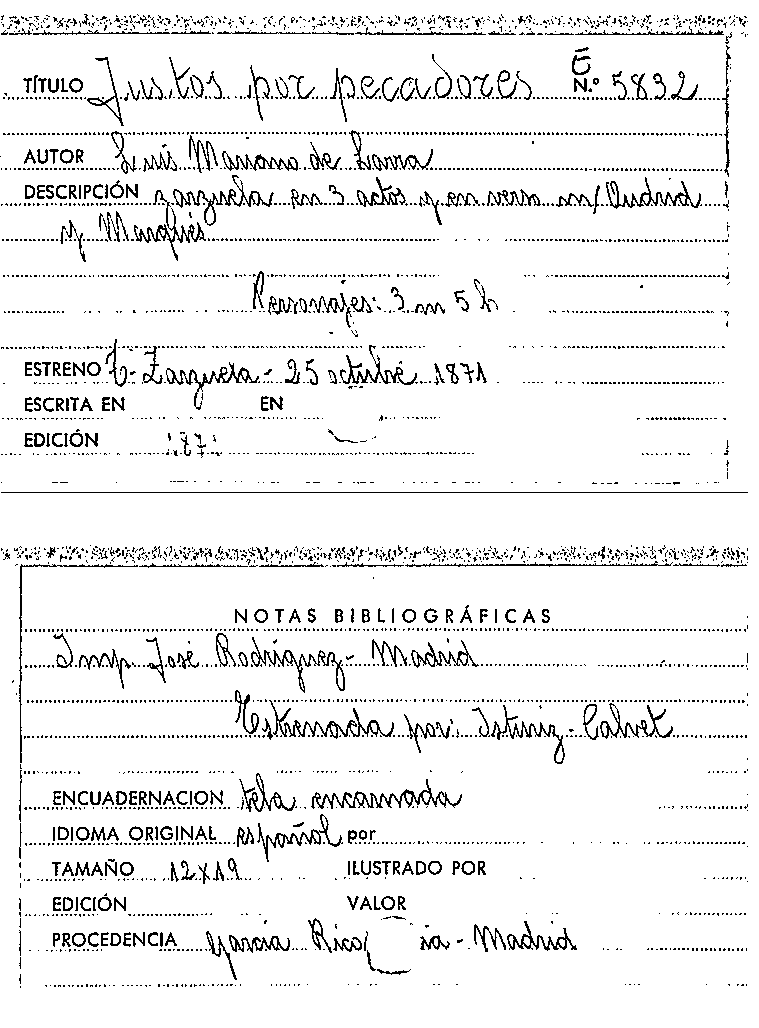 TÍTULO Justos por pecadores E N.º 5832
AUTOR Luis Mariano de Larra
DESCRIPCIÓN zarzuela en 3 actos y en verso m/ Oudrid
y Marqués
Personajes: 3 m 5 h
ESTRENO T. Zarzuela - 25 octubre 1871
ESCRITA EN EN
EDICIÓN 1871
NOTAS BIBLIOGRÁFICAS
Imp. José Rodríguez - Madrid
Estrenada por: Isturiz - Calvet
ENCUADERNACION tela encarnada
IDIOMA ORIGINAL español por
TAMAÑO 12x19 ILUSTRADO POR
EDICIÓN VALOR
PROCEDENCIA García Rico ia - Madrid